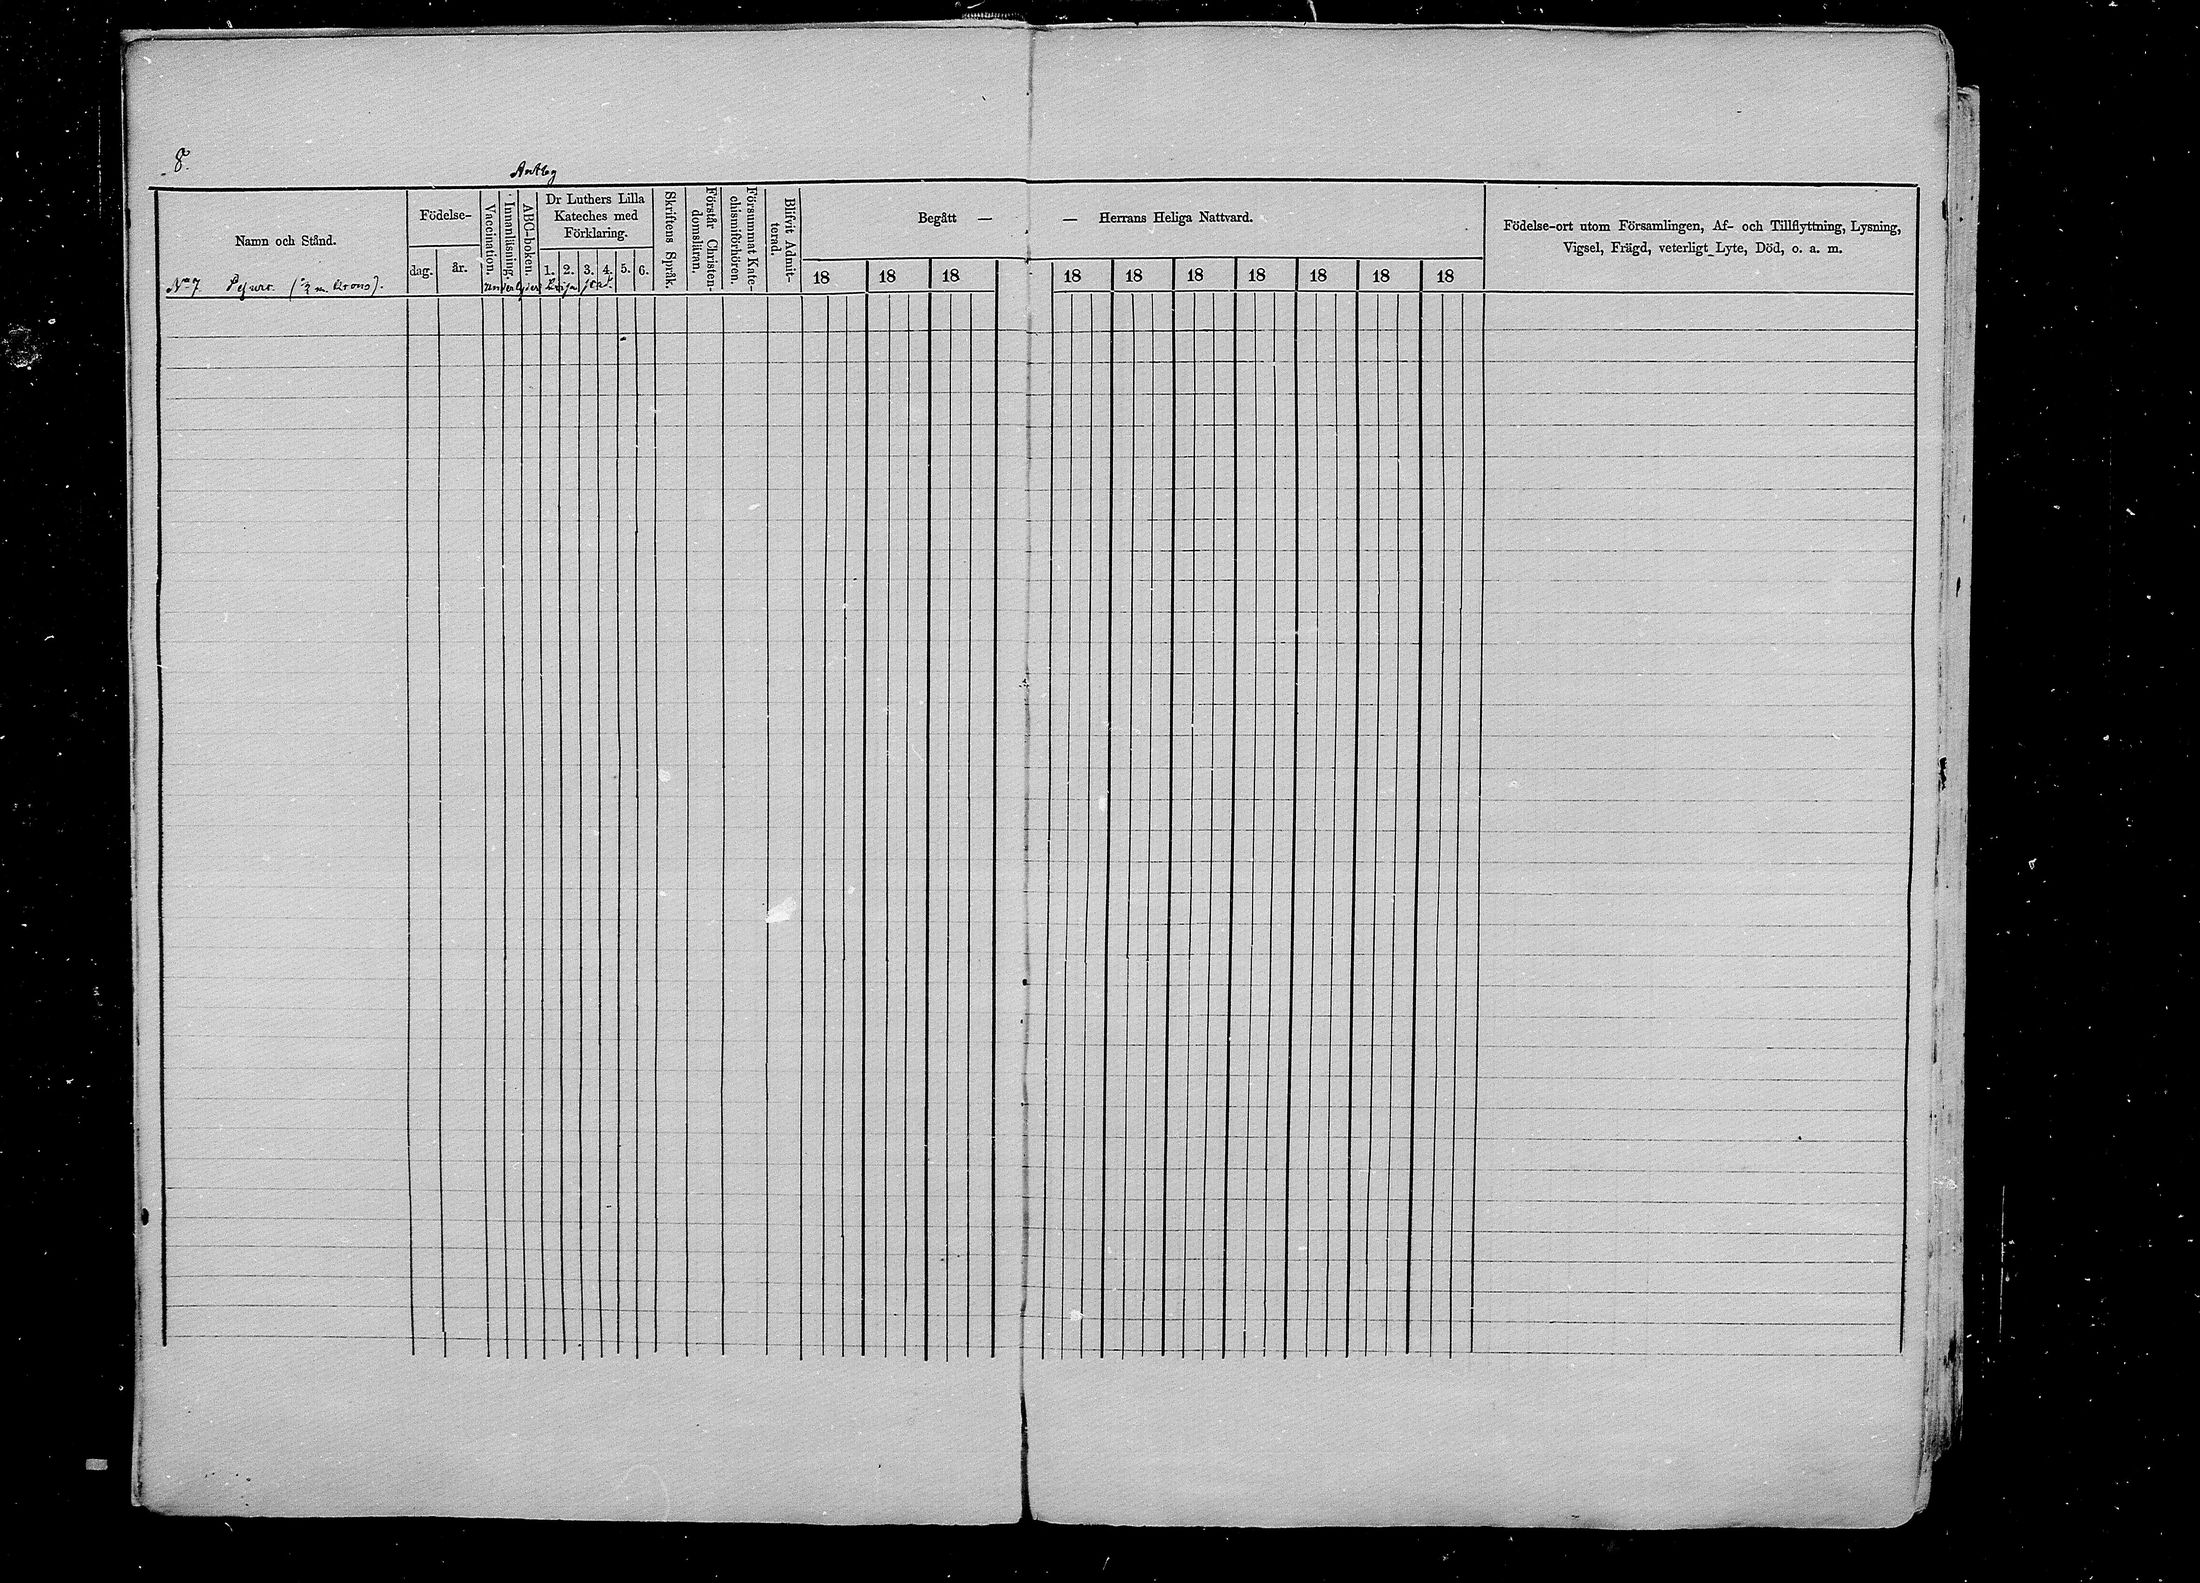 8.
Antby
Namn och Stånd.
Födelse-
dag.
år.
Vaccination.
Innanläsning.
ABC-boken.
Dr Luthers Lilla
Kateches med
Förklaring.
1. 2. 3. 4. 5. 6.
Skriftens Språk.
Förstår Christen-
domsläran.
Försummat Kate-
chismiförhören.
Blifvit Admit-
terad.
Begått — — Herrans Heliga Nattvard.
18 18 18 18 18 18 18 18 18 18
Födelse-ort utom Församlingen, Af- och Tillflyttning, Lysning,
Vigsel, Frägd, veterligt Lyte, Död, o. a. m.
No 7